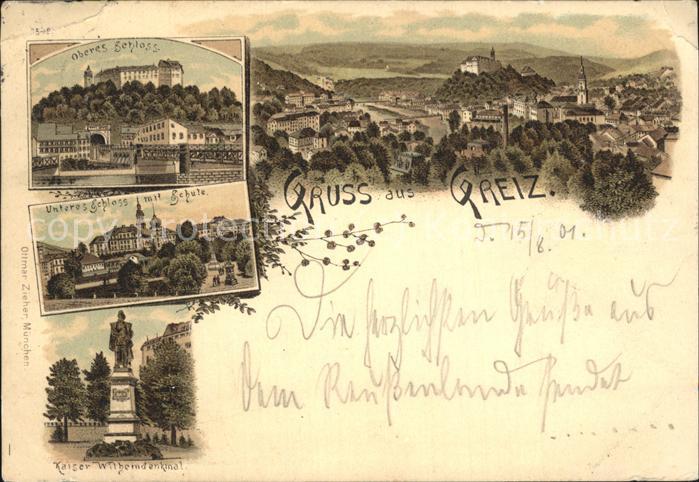 Oberes Schloss.
GRUSS aus GREIZ.
Unteres Schloss mit Schule.
d. 15/8. 01.
Die herzlichsten Grüße aus
dem Reußenlande sendet
Ottmar Zieher, München.
Kaiser Wilhelmdenkmal.